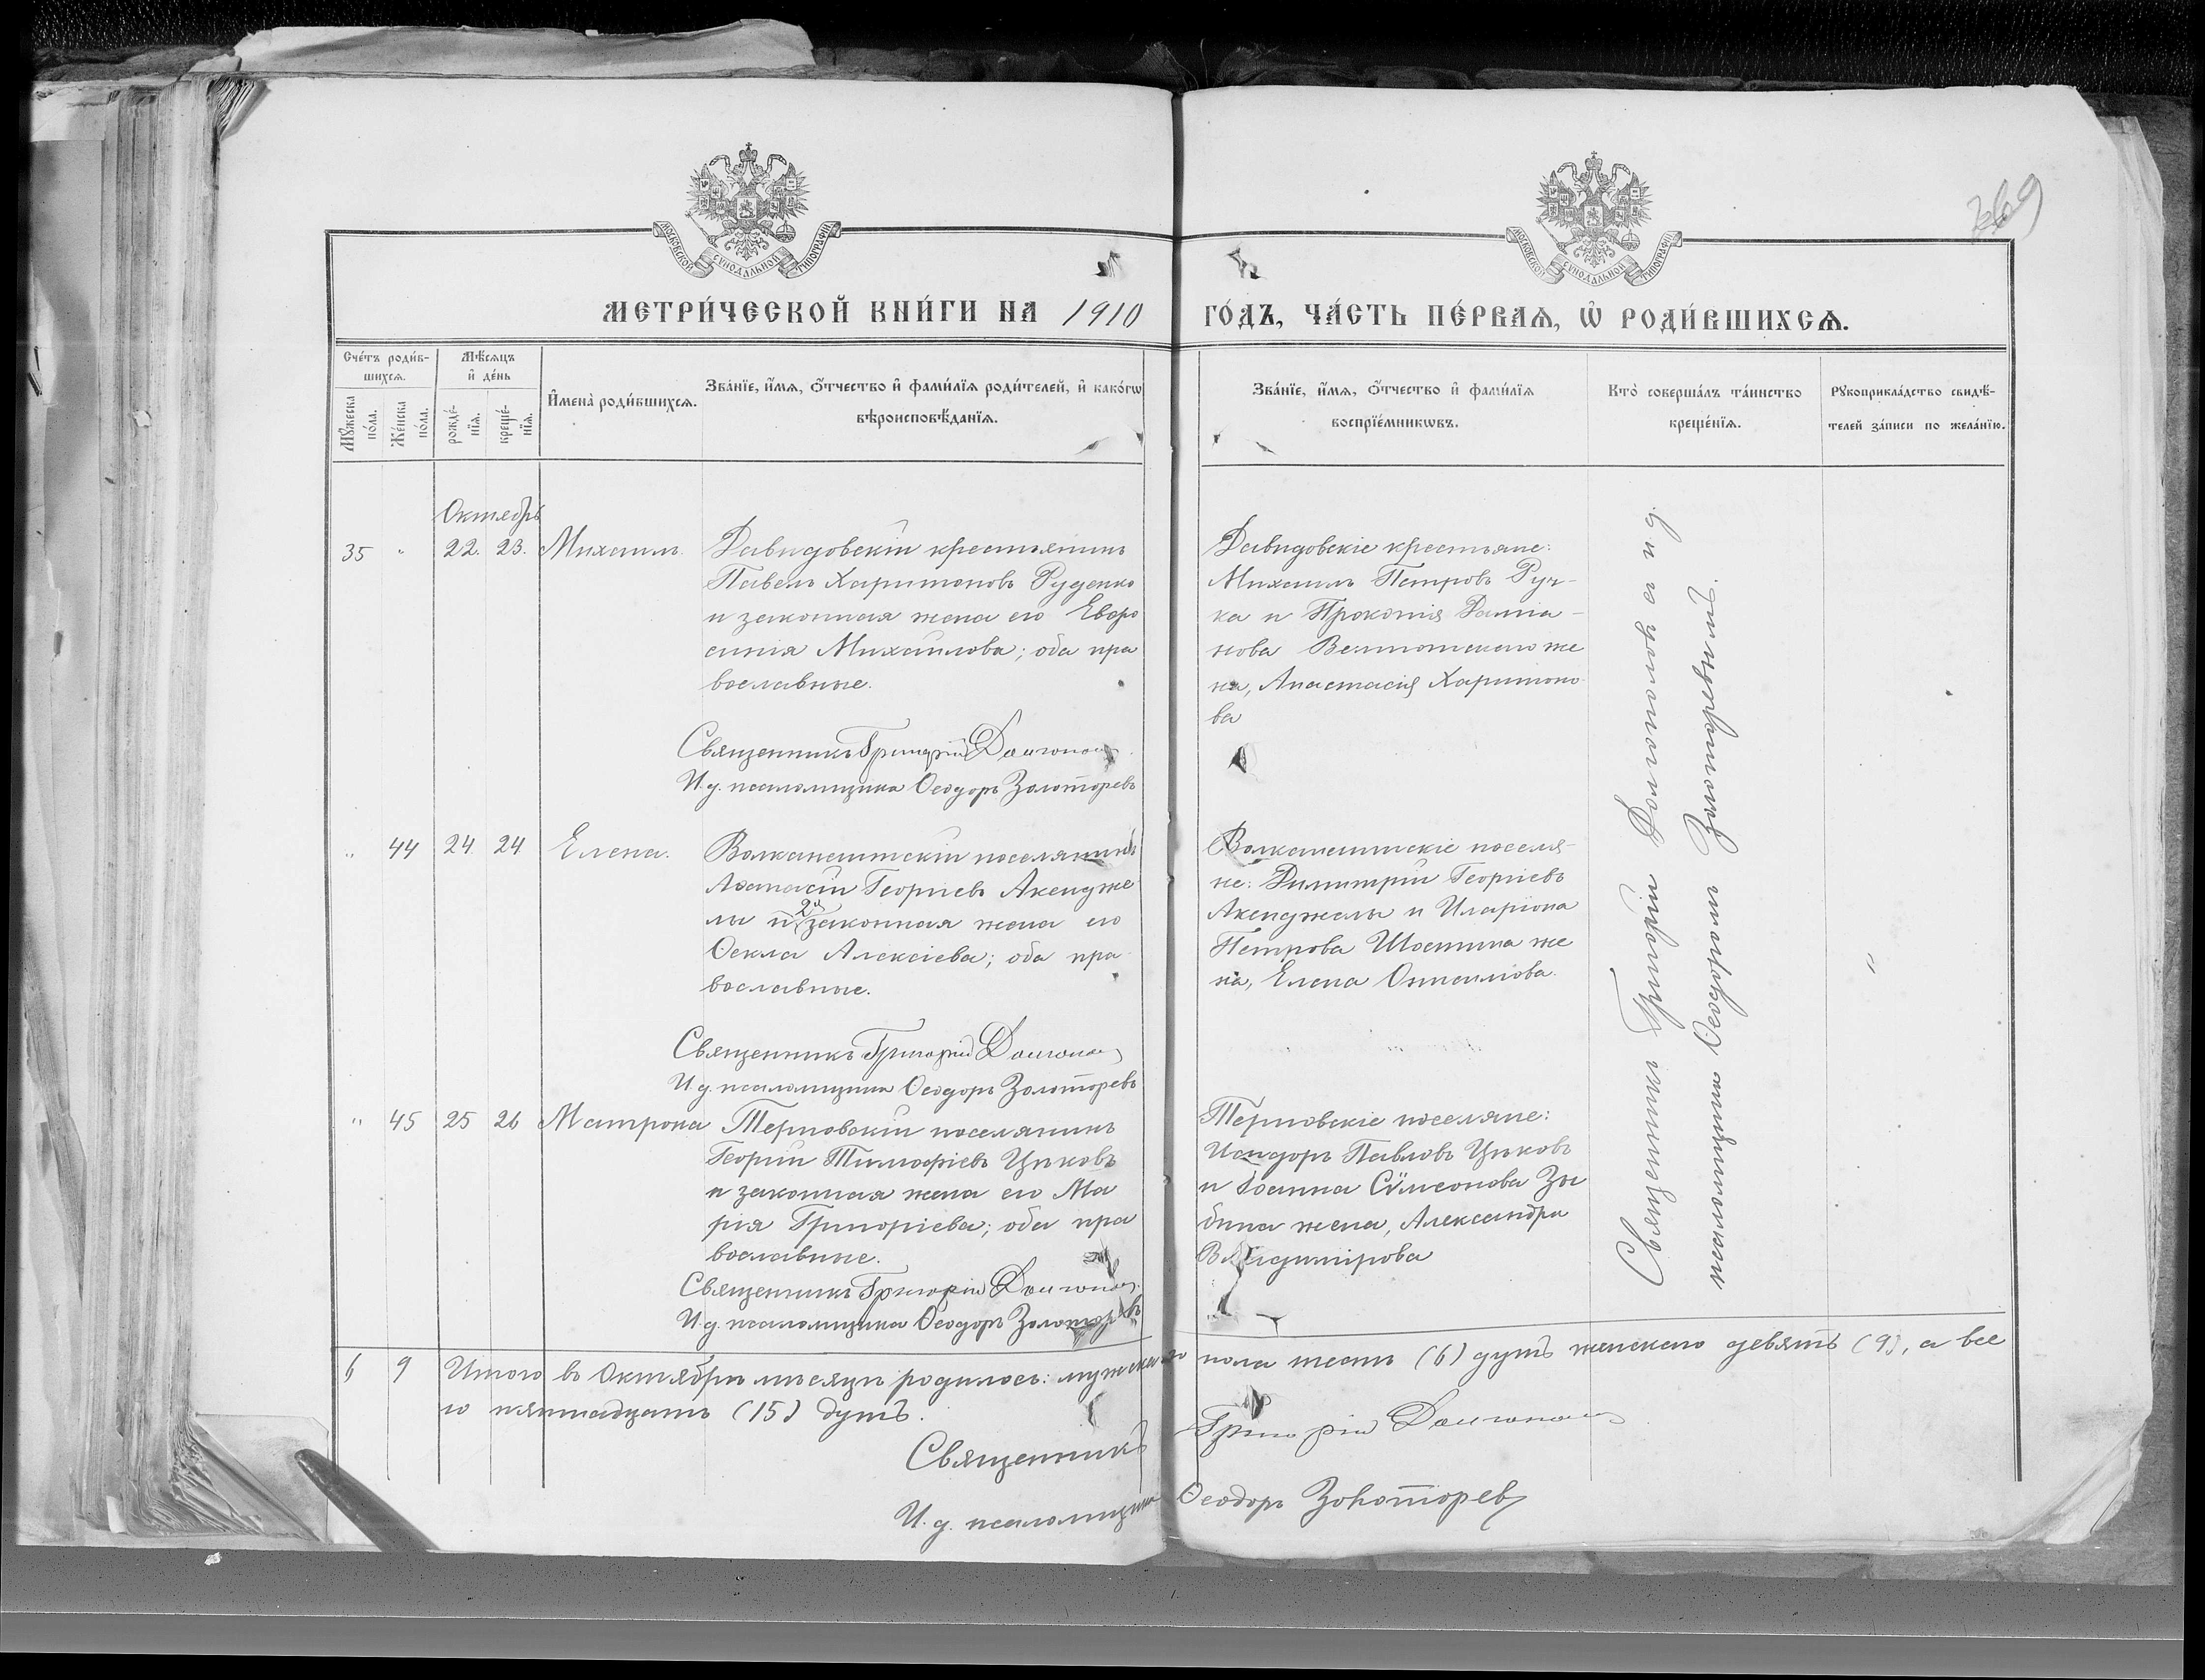 МОСКОВСКОЙ СѴНОДАЛЬНОЙ ТИПОГРАФІИ
МОСКОВСКОЙ СѴНОДАЛЬНОЙ ТИПОГРАФІИ
МЕТРИ́ЧЕСКОЙ КНИ́ГИ НА 1910 ГО́ДЪ, ЧА́СТЬ ПЕ́РВАѦ, Ѡ҆ РОДИ́ВШИХСѦ.
Сче́тъ роди́в-
шихсѧ.
Мꙋ́жеска по́ла.
Же́нска по́ла.
Мѣ́сѧцъ
и҆ де́нь
рожде́-
нїѧ.
креще́-
нїѧ.
И҆мена̀ роди́вшихсѧ.
Зва́нїе, и҆́мѧ, ѻ҆́тчество и҆ фами́лїѧ роди́телей, и҆ како́гѡ
вѣроисповѣ́данїѧ.
Зва́нїе, и҆́мѧ, ѻ҆́тчество и҆ фами́лїѧ
воспрїе́мникѡвъ.
Кто̀ соверша́лъ та́инство
креще́нїѧ.
Рꙋкоприкла́дство свидѣ́-
телей за́писи по жела́нїю.
Октябрь
35 " 22. 23. Михаилъ.
Давидовскій крестьянинъ
Павелъ Харитоновъ Руденко
и законная жена его Евфро
синія Михаилова; оба пра
вославные.
Священникъ Григорій
И. д. псаломщика Ѳеодоръ Золоторевъ
Давидовскіе крестьяне:
Михаилъ Петровъ Руч-
ка и Прокопія
нова же
на, Анастасія Харитоно
ва
" 44 24 24 Елена.
Волканештскій поселянинъ
Аѳанасій Георгіевъ Акендже
лы и 2я законная жена его
Ѳекла Алексіева; оба пра
вославные.
Священникъ Григорій
И. д. псаломщика Ѳеодоръ Золоторевъ
Волканештскіе поселя-
не: Димитрій Георгіевъ
Акенджелы и Иларіона
Петрова же
на, Елена
" 45 25 26 Матрона
Терновскій поселянинъ
Георгій Тимоѳіевъ Цыковъ
и законная жена его Ма
рія Григоріева; оба пра
вославные.
Священникъ Григорій
И. д. псаломщика Ѳеодоръ Золоторевъ
Терновскіе поселяне:
Исидоръ Павловъ Цыковъ
и Іоанна Сѵмеонова Зы
бина жена, Александра
Владимірова
Священникъ Григорій съ и. д.
псаломщика Ѳеодоромъ Золоторевымъ.
"
6 9 Итого въ Октябрѣ мѣсяцѣ родилось: мужскаго пола шесть (6) душъ женскаго девять (9), а все
го пятнадцать (15) душъ.
Священникъ Григорій
И. д. псаломщика Ѳеодоръ Золоторевъ